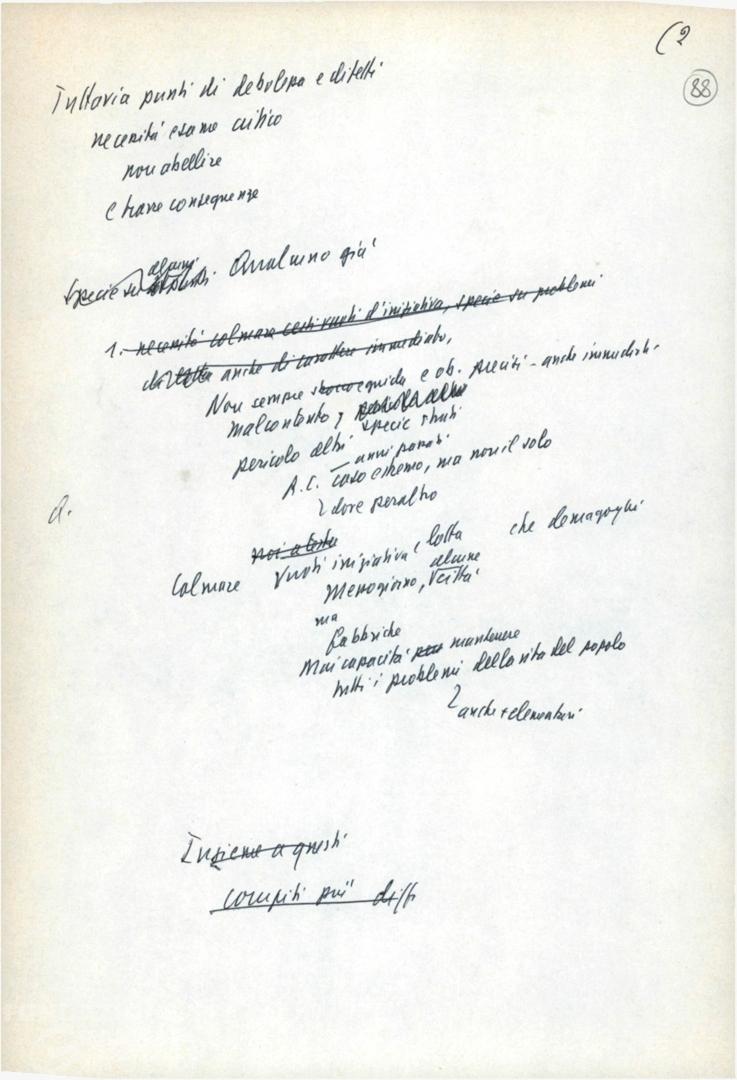 (2
88
Tuttavia punti di debolezza e difetti
necessità esame critico
non abellire
e trarre conseguenze
alcuni
Specie su punti. Qualcuno già
1. necessità colmare certi vuoti d'iniziativa, specie su problemi
di lotta anche di carattere immediato,
Non sempre guida e ob. precisi - anche immediati.
malcontento
pericolo altri specie strati
anni passati
R.C. caso estremo, ma non il solo
dove peraltro
a.
noi a testa
Colmare vuoti iniziativa e lotta che demagoghi
Mezzogiorno, alcune città
ma
fabbriche
Noi capacità mantenere
tutti i problemi della vita del popolo
anche + elementari
Insieme a questi
compiti più diffi